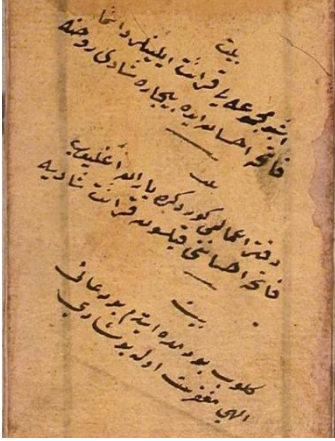 بيت
اشبو مجموعه يی قرائت ايلينلر دائما
فاتحه احسان ايده بيچاره شادی روحنه
بيت
دفتر اعمالمی كوردكده يارانم اغليوب
فاتحه احساننی قيلسون قرائت شاديه
بيت
كلوب بو دمده ايتدم بو دعائی
الهی مغفرت اوله بو شادی